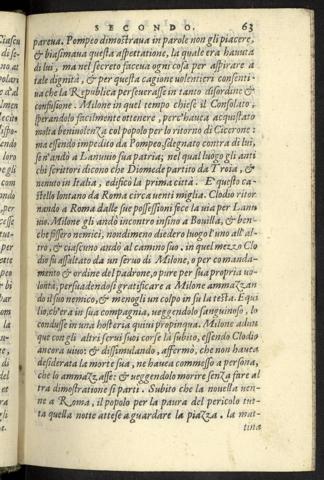 SECONDO. 63
pareva. Pompeo dimostrava in parole non gli piacere,
& biasimava questa aspettatione, la quale era havuta
di lui, ma nel secreto faceva ogni cosa per aspirare a
tale dignità, & per questa cagione volentieri consenti-
va che la Republica perseverasse in tanto disordine &
confusione. Milone in quel tempo chiese il Consolato,
sperandolo facilmente ottenere, perc'haveva acquistato
molta benivolenza col popolo per lo ritorno di Cicerone:
ma essendo impedito da Pompeo, sdegnato contra di lui,
se n'andò a Lanuvio sua patria; nel qual luogo gli anti
chi scrittori dicono che Diomede partito da Troia, &
venuto in Italia, edificò la prima città. E' questo ca-
stello lontano da Roma circa venti miglia. Clodio ritor-
nando a Roma dalle sue possessioni fece la via per Lanu
vio. Milone gli andò incontro insino a Bovilla, & ben-
che fossero nemici, nondimeno diedero luogo l'uno all'al-
tro, & ciascuno andò al camino suo. in quel mezzo Clo
dio fu assaltato da un servo di Milone, o per comanda-
mento & ordine del padrone, o pure per sua propria vo-
lontà, persuadendosi gratificare a Milone ammazzan
do il suo nemico, & menogli un colpo in su la testa. E qui
lio, ch'era in sua compagnia, veggendolo sanguinoso, lo
condusse in una hosteria quivi propinqua. Milone adun
que con gli altri servi suoi corse là subito, essendo Clodio
ancora vivo: & dissimulando, affermò, che non haveva
desiderata la morte sua, ne haveva commesso a persona,
che lo ammazzasse: & veggendolo morire senza fare al
tra dimostratione si partì. Subito che la novella ven-
ne a Roma, il popolo per la paura del pericolo tut-
ta quella notte attese a guardare la piazza. la mat-
tina